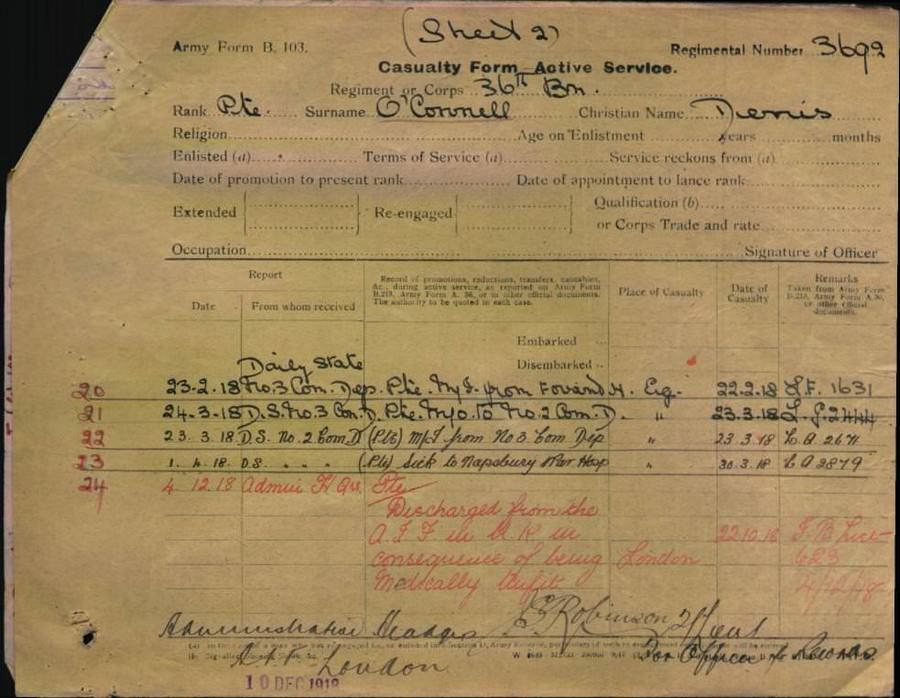 (Sheet 2)
Army Form B. 103.
Regimental Number 3692
Casualty Form Active Service.
Regiment or Corps 36th Bn.
Rank Pte. Surname O'Connell Christian Name Denis
Religion Age on Enlistment years months
Enlisted (a) Terms of Service (a) Service reckons from (a)
Date of promotion to present rank Date of appointment to lance rank
Extended Re-engaged Qualification (b)
or Corps Trade and rate
Occupation Signature of Officer
Report
Date From whom received
Record of promotions, reductions, transfers, casualties,
&c., during active service, as reported on Army Form
B.213, Army Form A. 36, or in other official documents.
The authority to be quoted in each case.
Place of Casualty
Date of
Casualty
Remarks
Taken from Army Form
B.213, Army Form A.36,
or other official
documents.
Embarked
Disembarked
Daily State
20 23-2-18 No.3 Com. Dep. Pte. M/I from Eng. 22.2.18 1631
21 24-3-18 D.S. No.3 Com. D. Pte. M/O to No. 2 Com. D. " 23.3.18
22 23.3.18 D.S. No. 2 Com D (Pte) M/I from No 3 Com Dep " 23 3 18 2671
23 1. 4. 18. D.S. " " " (Pte) Sick to Napsbury War Hosp " 30.3.18 2879
24 4. 12.18 Admin H Qrs Pte
Discharged from the
A.I.F. in U.K in 22.10.18 List
consequence of being London 623
Medically Unfit 4/12/18
Administrative Headqrs E Robinson Lieut
London For Officer i/c Records
10 DEC 1918